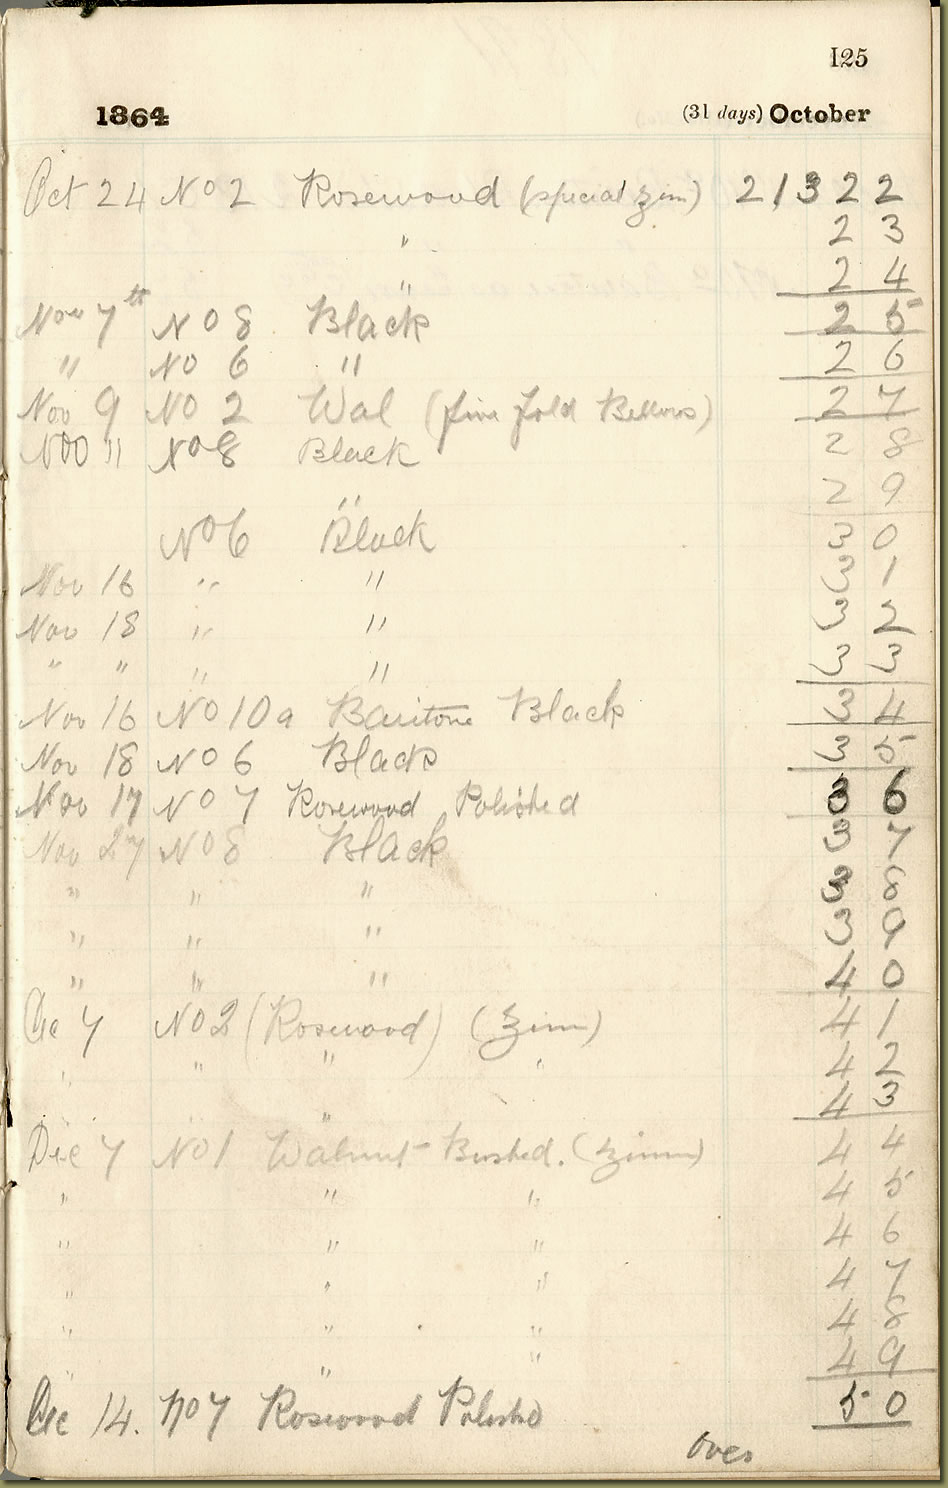 125
1864 (31 days) October
Oct 24 No 2 Rosewood (special Zim) 21322
" 23
" 24
Nov 7th No 8 Black 25
" No 6 " 26
Nov 9 No 2 Wal (five fold Bellows) 27
Nov 11 No 8 Black 28
" 29
No 6 Black 30
Nov 16 " " 31
Nov 18 " " 32
" " " " 33
Nov 16 No 10a Baritone Black 34
Nov 18 No 6 Black 35
Nov 17 No 7 Rosewood Polished 36
Nov 27 No 8 Black 37
" " " 38
" " " 39
" " " 40
Dec 7 No 2 (Rosewood) (Zim) 41
" " " " 42
" 43
Dec 7 No 1 Walnut - Bushed. (Zimm) 44
" " " 45
" " " 46
" " " 47
" " " 48
" " " 49
Dec 14. No 7 Rosewood Polished 50
over